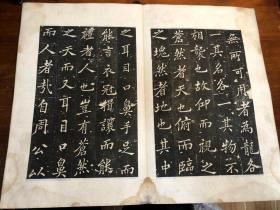 無所可用者為龍各
一其名各一其物不
相襲也故仰而視之
蒼然者天也俯而臨
之塊然者地也其中
之耳目口鼻手足而
能言衣冠揖讓而能
禮者人也豈有蒼然
之天而又耳目口鼻
而人者哉自周公以